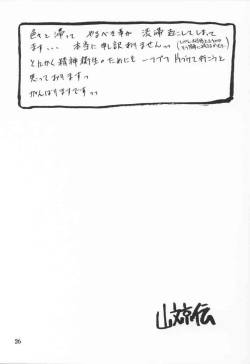 色々と滞って やるべき事が 渋滞起こしてしまって
ます... 本当に申し訳ありませんっっ
とにかく精神衛生のためにも 一つづつ 片づけて行こうと
思っておりますっ
がんばりますですっっ
山文京伝
26